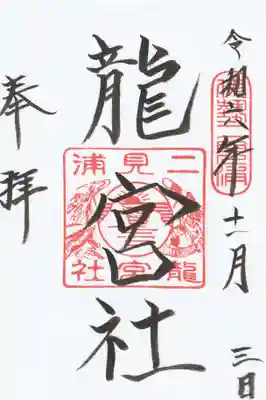 令和六年十一月三日
龍宮社
二見浦
龍宮社
奉拝